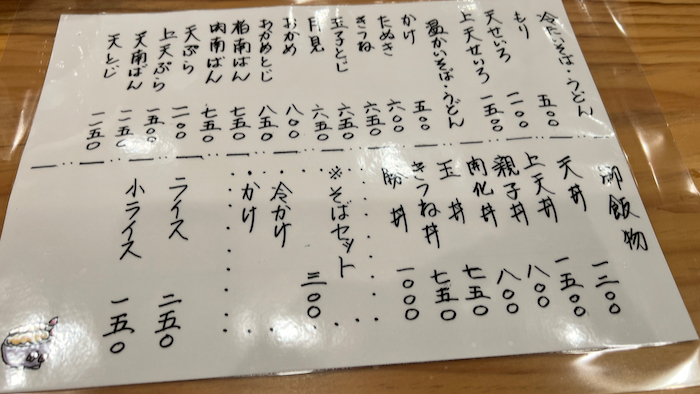 冷たいそば・うどん
もり 五〇〇
天せいろ 一二〇〇
上天せいろ 一五〇〇
温かいそば・うどん
かけ 五〇〇
たぬき 六〇〇
きつね 六五〇
玉子とじ 六五〇
月見 六五〇
おかめ 八〇〇
おかめとじ 八五〇
柏南ばん 七五〇
肉南ばん 七五〇
天ぷら 一二〇〇
上天ぷら 一五〇〇
天南ばん 一二五〇
天とじ 一二五〇
御飯物
天丼 一二〇〇
上天丼 一五〇〇
親子丼 八〇〇
開化丼 八〇〇
玉丼 七五〇
きつね丼 七五〇
勝丼 一〇〇〇
※そばセット 三〇〇
冷かけ
かけ
ライス 二五〇
小ライス 一五〇